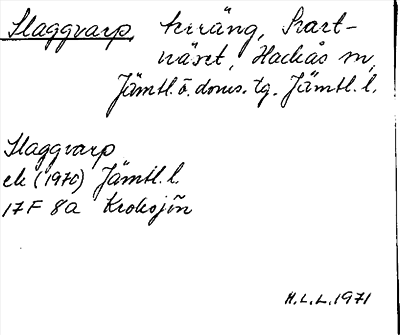 Slaggvarp, terräng, Svart-
näset, Hackås sn,
Jämtl. ö. doms. tg. Jämtl. l.
Slaggvarp
ek (1970) Jämtl. l.
17F 8a Kroksjön
H.L.L. 1971